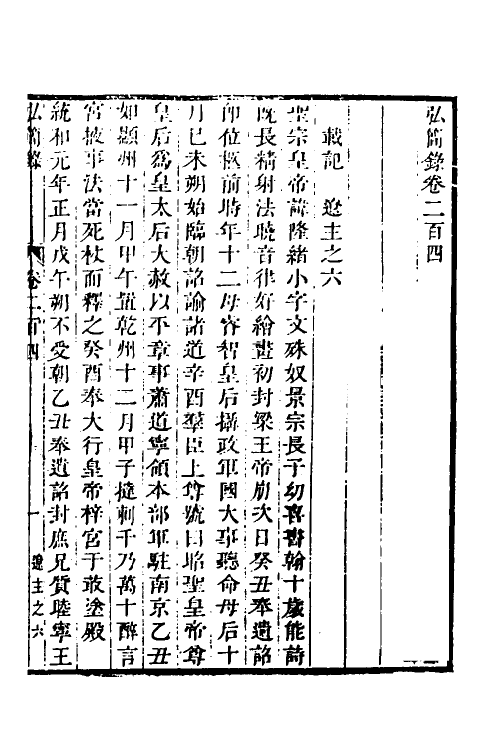 弘簡錄卷二百四
載記　遼主之六
聖宗皇帝諱隆緒小字文殊奴景宗長子幼喜書翰十歲能詩
既長精射法曉音律好繪畫初封梁王帝崩次日癸丑奉遺詔
即位柩前時年十二母睿智皇后攝政軍國大事聽命母后十
月己未朔始臨朝詔諭諸道辛酉羣臣上尊號曰昭聖皇帝尊
皇后爲皇太后大赦以平章事蕭道寧領本部軍駐南京乙丑
如顯州十一月甲午置乾州十二月甲子撻剌干乃萬十醉言
宮掖事法當死杖而釋之癸酉奉大行皇帝梓宮于菆塗殿
統和元年正月戊午朔不受朝乙丑奉遺詔封庶兄質睦寧王
弘簡錄　卷二百四　一　遼主之六